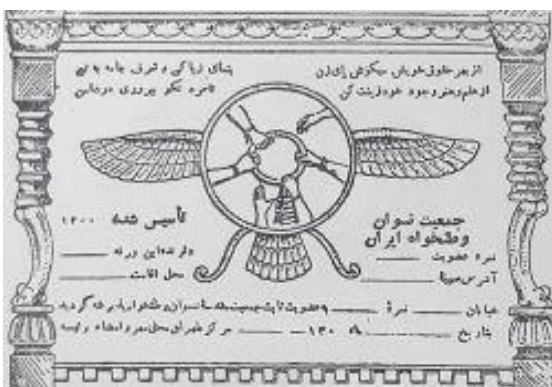 از بهر حقوق خویش میکوش ای زن
از علم و هنر وجود خود زینت کن
بنمای ز پاکی و شرف جامه به تن
تا مرد نکو بپروری در دامن
جمعیت نسوان
وطنخواه ایران
تأسیس شده ۱۳۰۰
نمره عضویت
دارنده این ورقه
آدرس مبدأ
محل اقامت
خیابان نمره به عضویت ثابت جمعیت نسوان وطنخواه پذیرفته گردید
بتاریخ ماه ۱۳۰ مرکز طهران محل مهر و امضاء رئیسه